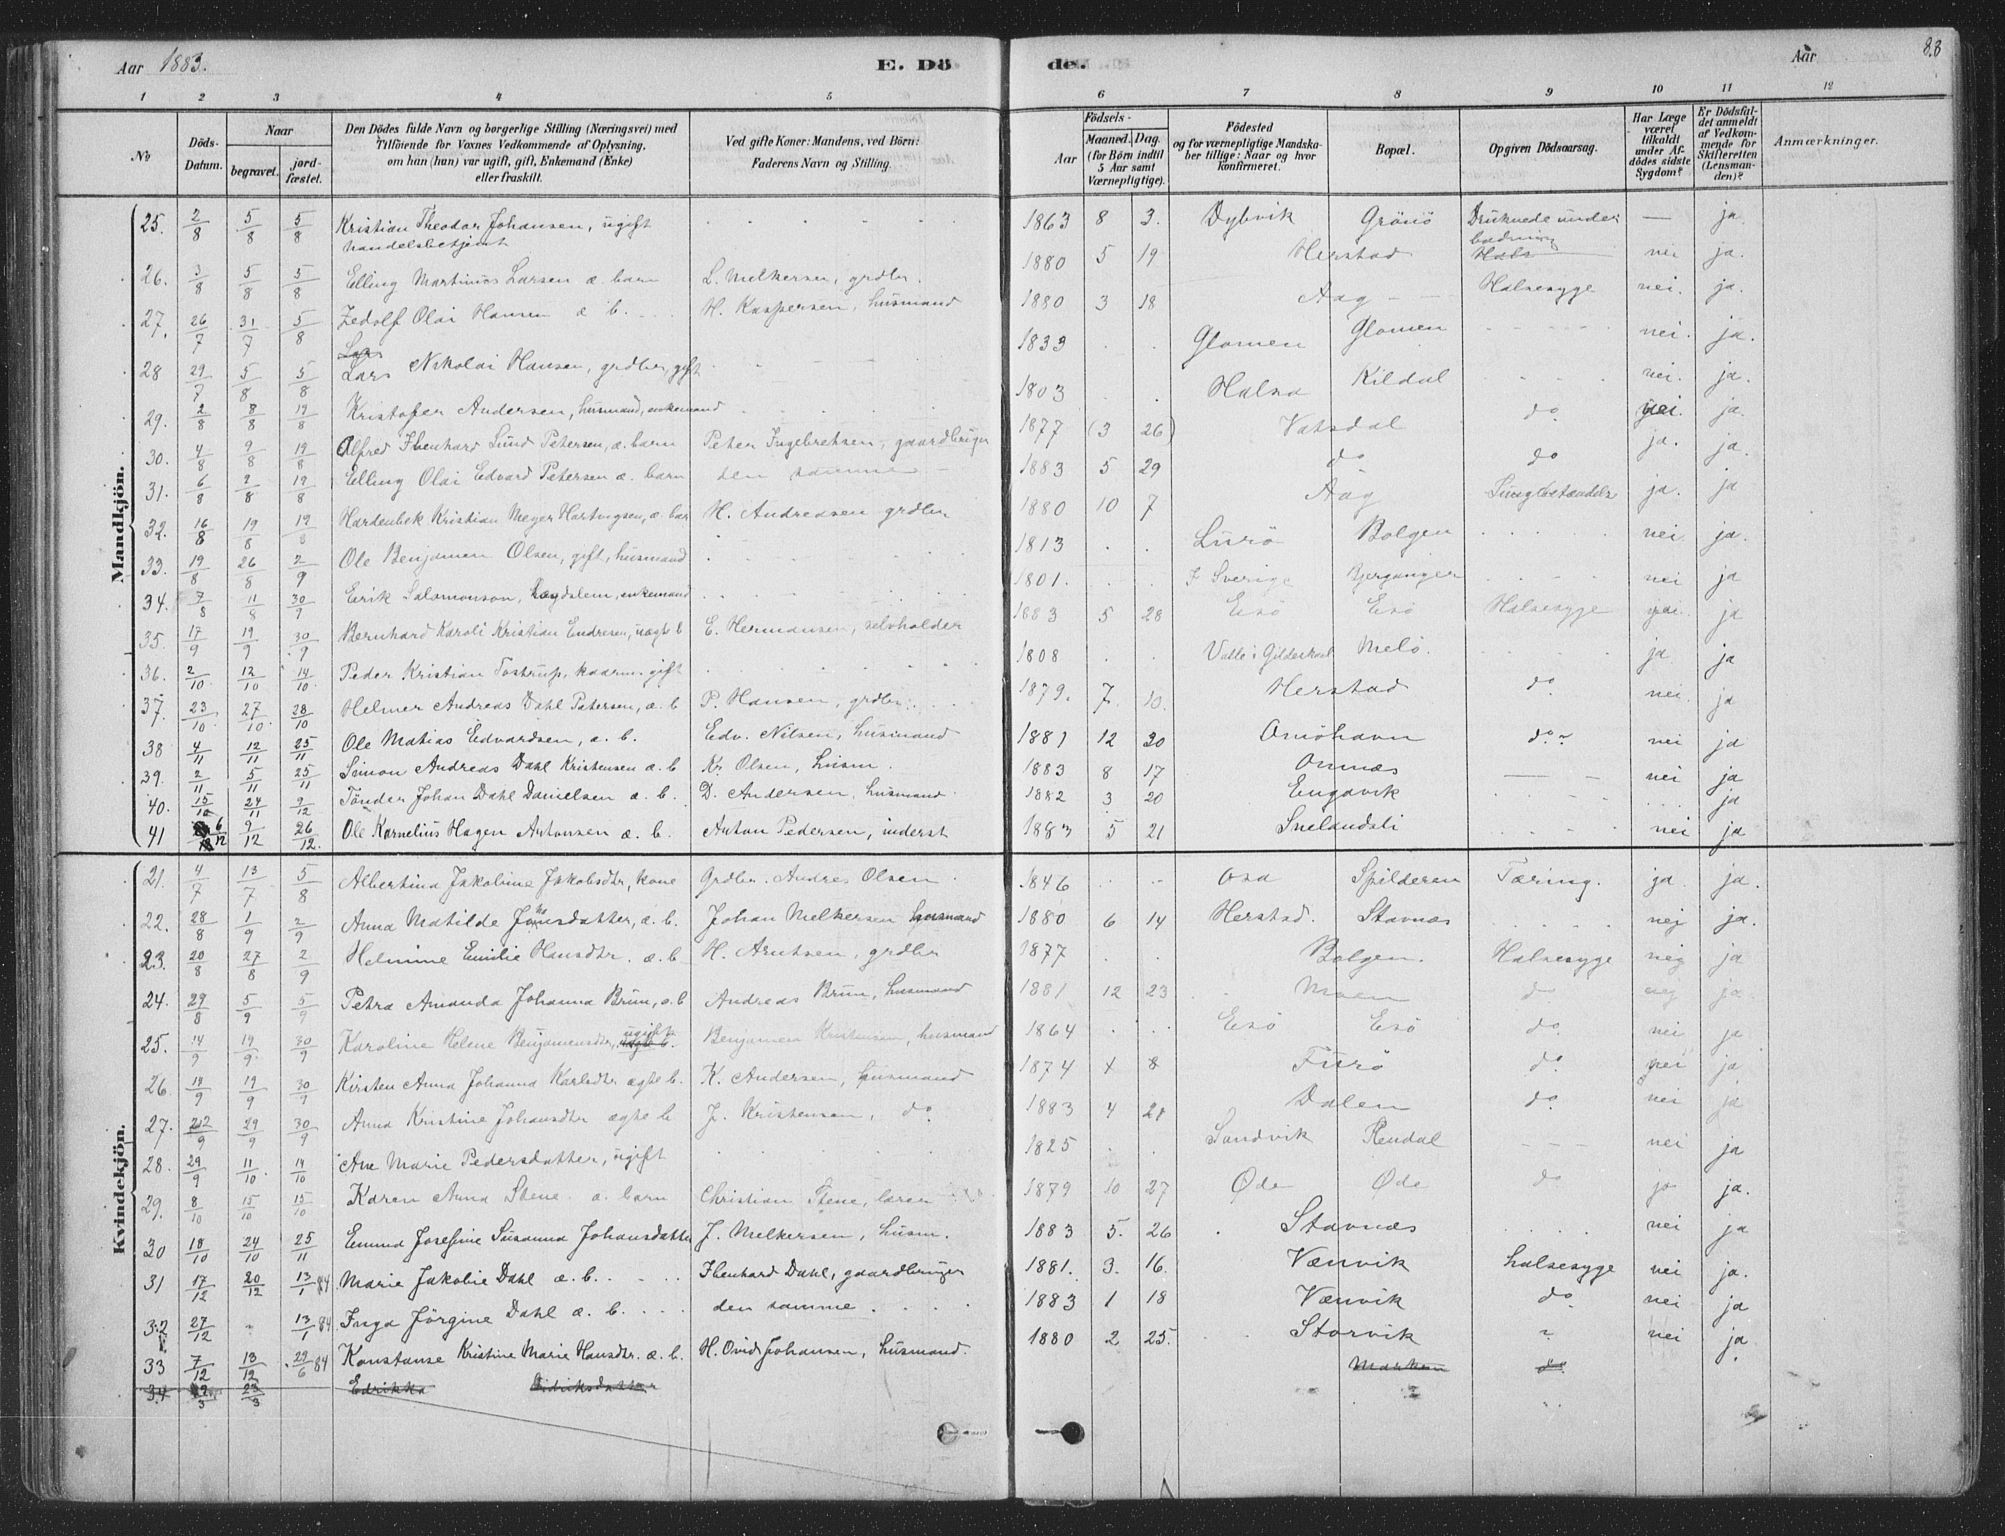 Aar 1883.
E. Dö
de.
Aar
88
1 2 3 4 5 6 7 8 9 10 11 12
No
Döds-Datum.
Naar
begravet.
jord-fæstet.
Den Dödes fulde Navn og borgerlige Stilling (Næringsvei) med
Tilföiende for Voxnes Vedkommende af Oplysning,
om han (hun) var ugift, gift, Enkemand (Enke)
eller fraskilt.
Ved gifte Koner: Mandens, ved Börn:
Faderens Navn og Stilling.
Födsels-
Aar
Maaned. Dag.
(for Börn indtil
5 Aar samt
Værnepligtige).
Födested
og for værnepligtige Mandska-
ber tillige: Naar og hvor
konfirmeret.
Bopæl.
Opgiven Dödsaarsag.
Har Læge
været
tilkaldt
under Af-
dödes sidste
Sygdom?
Er Dödsfal-
det anmeldt
af Vedkom-
mende for
Skifteretten
(Lensman-
den)?
Anmærkninger.
Mandkjön.
25. 2/8 5/8 5/8 Kristian Theodor Johansen, ugift 1863 8 3. Dybvik Grönö Druknede under — ja
handelsbetjent badning
26. 3/8 5/8 5/8 Elling Martinus Larsen æ. barn L. Melkersen, grdbr. 1880 5 19 Herstad Hals nei ja.
27. 26/7 31/7 5/8 Zedolf Olai Hansen æ b. H. Kaspersen, husmand 1880 3 18 Aag Halsesyge nei. ja.
Lars
28 29/7 5/8 5/8 Lars Nikolai Hansen, grdbr, gift 1839 Glomen Glomen nei. ja.
29. 2/8 8/8 19/8 Kristofer Andersen, husmand, enkemand 1803 Halsa Kildal nei. ja.
30. 4/8 9/8 19/8 Alfred Ibenhard Lund Petersen, æ. barn Peter Ingebretsen, gaardbruger 1877 (3 26) Vatsdal do nei. ja.
31. 6/8 9/8 19/8 Elling Olai Edvard Petersen æ. barn den samme 1883 5 29 do do ja. ja.
32. 16/8 19/8 19/8 Hardenbek Kristian Meyer Hartvigsen, æ. bar H. Andreasen grdbr 1880 10 7 Aag ja. ja
33. 19/8 26/8 2/9 Ole Benjamen Olsen, gift, husmand 1813 Lurö Bolgen nei ja.
34. 7/8 11/8 30/9 Eirik Salomonson, Lægdslem, enkemand 1801. I Sverige nei ja
35. 17/9 19/9 30/9 Bernhard Karoli Kristian Endresen, uægte b E. Hermansen, selvholder 1883 5 28 Esö Esö Halsesyge nei ja
36. 2/10 12/10 14/10. Peder Kristian Tostrup, kaarm. gift 1808 Valle i Gildeskaal Melö. ja ja
37. 23/10 27/10. 28/10 Helmer Andreas Dahl Petersen, æ. b P. Hansen, grdbr. 1879. 7. 10. Herstad do nei. ja
38 4/11 12/11 25/11 Ole Matias Edvardsen, æ. b. Edv. Nilsen, husmand 1881 12 30 Amöhavn do nei ja
39. 2/11 5/11 25/11 Simon Andreas Dahl Kristensen æ. b Kr. Olsen, husm. 1883 8 17 Onnæs nei ja
40. 15/10 24/11 9/12 Tönder Johan Dahl Danielsen æ. b. D. Andersen, husmand. 1882 3 20 Engavik ja
41 6/12 9/12 26/12. Ole Kornelius Hagen Antonsen æ. b. Anton Pedersen, inderst 1883 5 21 Snelandsli nei ja
Kvindekjön.
21. 4/7 13/7 5/8 Albertina Jakobine Jakobsdtr, kone Grdbr. Andres Olsen 1846 Osa Spilderen Tæring. ja ja.
22. 28/8 1/9 2/9 Anna Matilde Johnsdatter, æ. b. Johan Melkersen husmand 1880 6 14 Herstad. Stavnæs nej ja.
23. 20/8 27/8 2/9 Helmine Emilie Hansdtr. æ. b H. Arntsen, grdbr 1877 Bolgen. Halsesyge nej ja
24. 29/8 5/9 5/9 Petra Amanda Johanna Brun, æ. b Andreas Brun, husmand 1881 12 23 Moen do nej ja
25. 14/9 19/9. 30/9 Karoline Helene Benjamensdtr, ugift Benjamen Kristensen, husmand 1864 Esö Esö do. nei ja
26. 14/9 19/9 30/9 Kirsten Anna Johanna Karlsdtr ægte b. K. Andersen, husmand 1874 4 8 Furö do. nei ja
27. 22/9 29/9 30/9 Anna Kristine Johansdtr ægte b J. Kristensen, do. 1883 4 21 Dalen do. nei ja
28. 29/9 11/10. 14/10 Ane Marie Pedersdatter, ugift 1825 Sandvik Rendal nei ja
29. 8/10 15/10 15/10 Karen Anna Stene. æ. barn Christian Stene, lærer 1879 10 27 Øde Øde do ja ja.
30 18/10 24/10 25/11 Emma Josefine Susanna Johansdatter J. Melkersen, husm. 1883 5. 26 Stavnæs nei ja
31 17/12 20/12 13/1 84 Marie Jakobie Dahl æ. b. Ibenhard Dahl, gaardbruger 1881. 3. 16. Vænvik halsesyge nei ja.
32 27/12 " 13/1 84 Inga Jörgine Dahl æ. b. den samme 1883 1 18 Vænvik do nei ja
33 7/12 13/12 29/6 84 Konstanse Kristine Marie Hansdtr. æ. b. H. Ovid Johansen, husmand. 1880 2 25. Storvik " nei ja
34 23/3 Edrikka Didriksdatter do